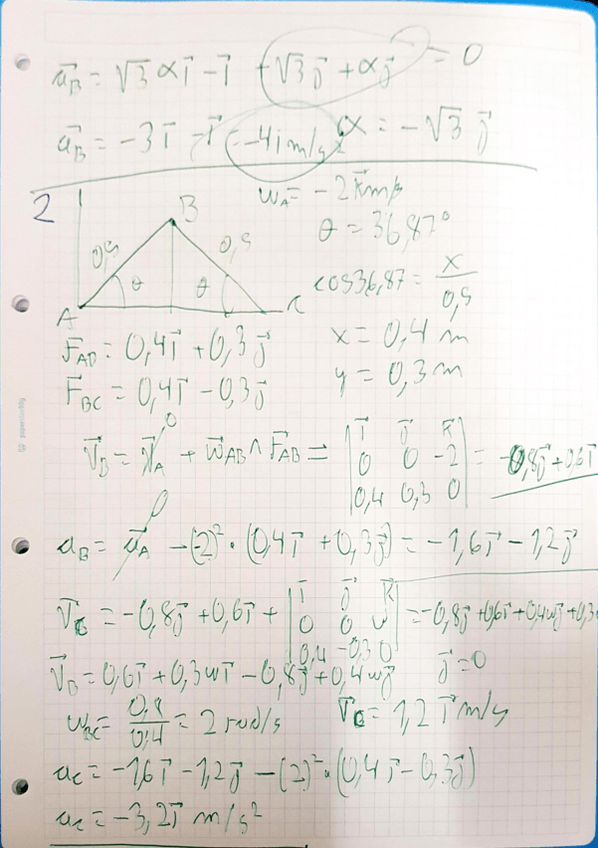 a⃗B = √3 αi⃗ - i⃗ + √3 j⃗ + αj⃗ = 0
a⃗B = -3i⃗ - i⃗ = -4i m/s² α = -√3 j⃗
2
ωA = -2k⃗ m/s
B
0,5 0,5
θ = 36,87°
θ θ
cos36,87 = x/0,5
A C
r⃗AB = 0,4i⃗ + 0,3j⃗
x = 0,4 m
r⃗BC = 0,4i⃗ - 0,3j⃗
y = 0,3 m
V⃗B = V⃗A 0 + ω⃗AB ∧ r⃗AB = | i⃗ j⃗ k⃗ | 0 0 -2 | 0,4 0,3 0 | = -0,8j⃗ + 0,6i⃗
aB = a⃗A 0 - (-2)² · (0,4i⃗ + 0,3j⃗) = -1,6i⃗ - 1,2j⃗
V⃗C = -0,8j⃗ + 0,6i⃗ + | i⃗ j⃗ k⃗ | 0 0 ω | 0,4 -0,3 0 | = -0,8j⃗ + 0,6i⃗ + 0,4ωj⃗ + 0,3
V⃗B = 0,6i⃗ + 0,3ωi⃗ - 0,8j⃗ + 0,4ωj⃗ j⃗ = 0
ωBC = 0,8/0,4 = 2 rad/s V⃗C = 1,2 i⃗ m/s
aC = -1,6i⃗ - 1,2j⃗ - (2)² · (0,4i⃗ - 0,3j⃗)
aC = -3,2i⃗ m/s²